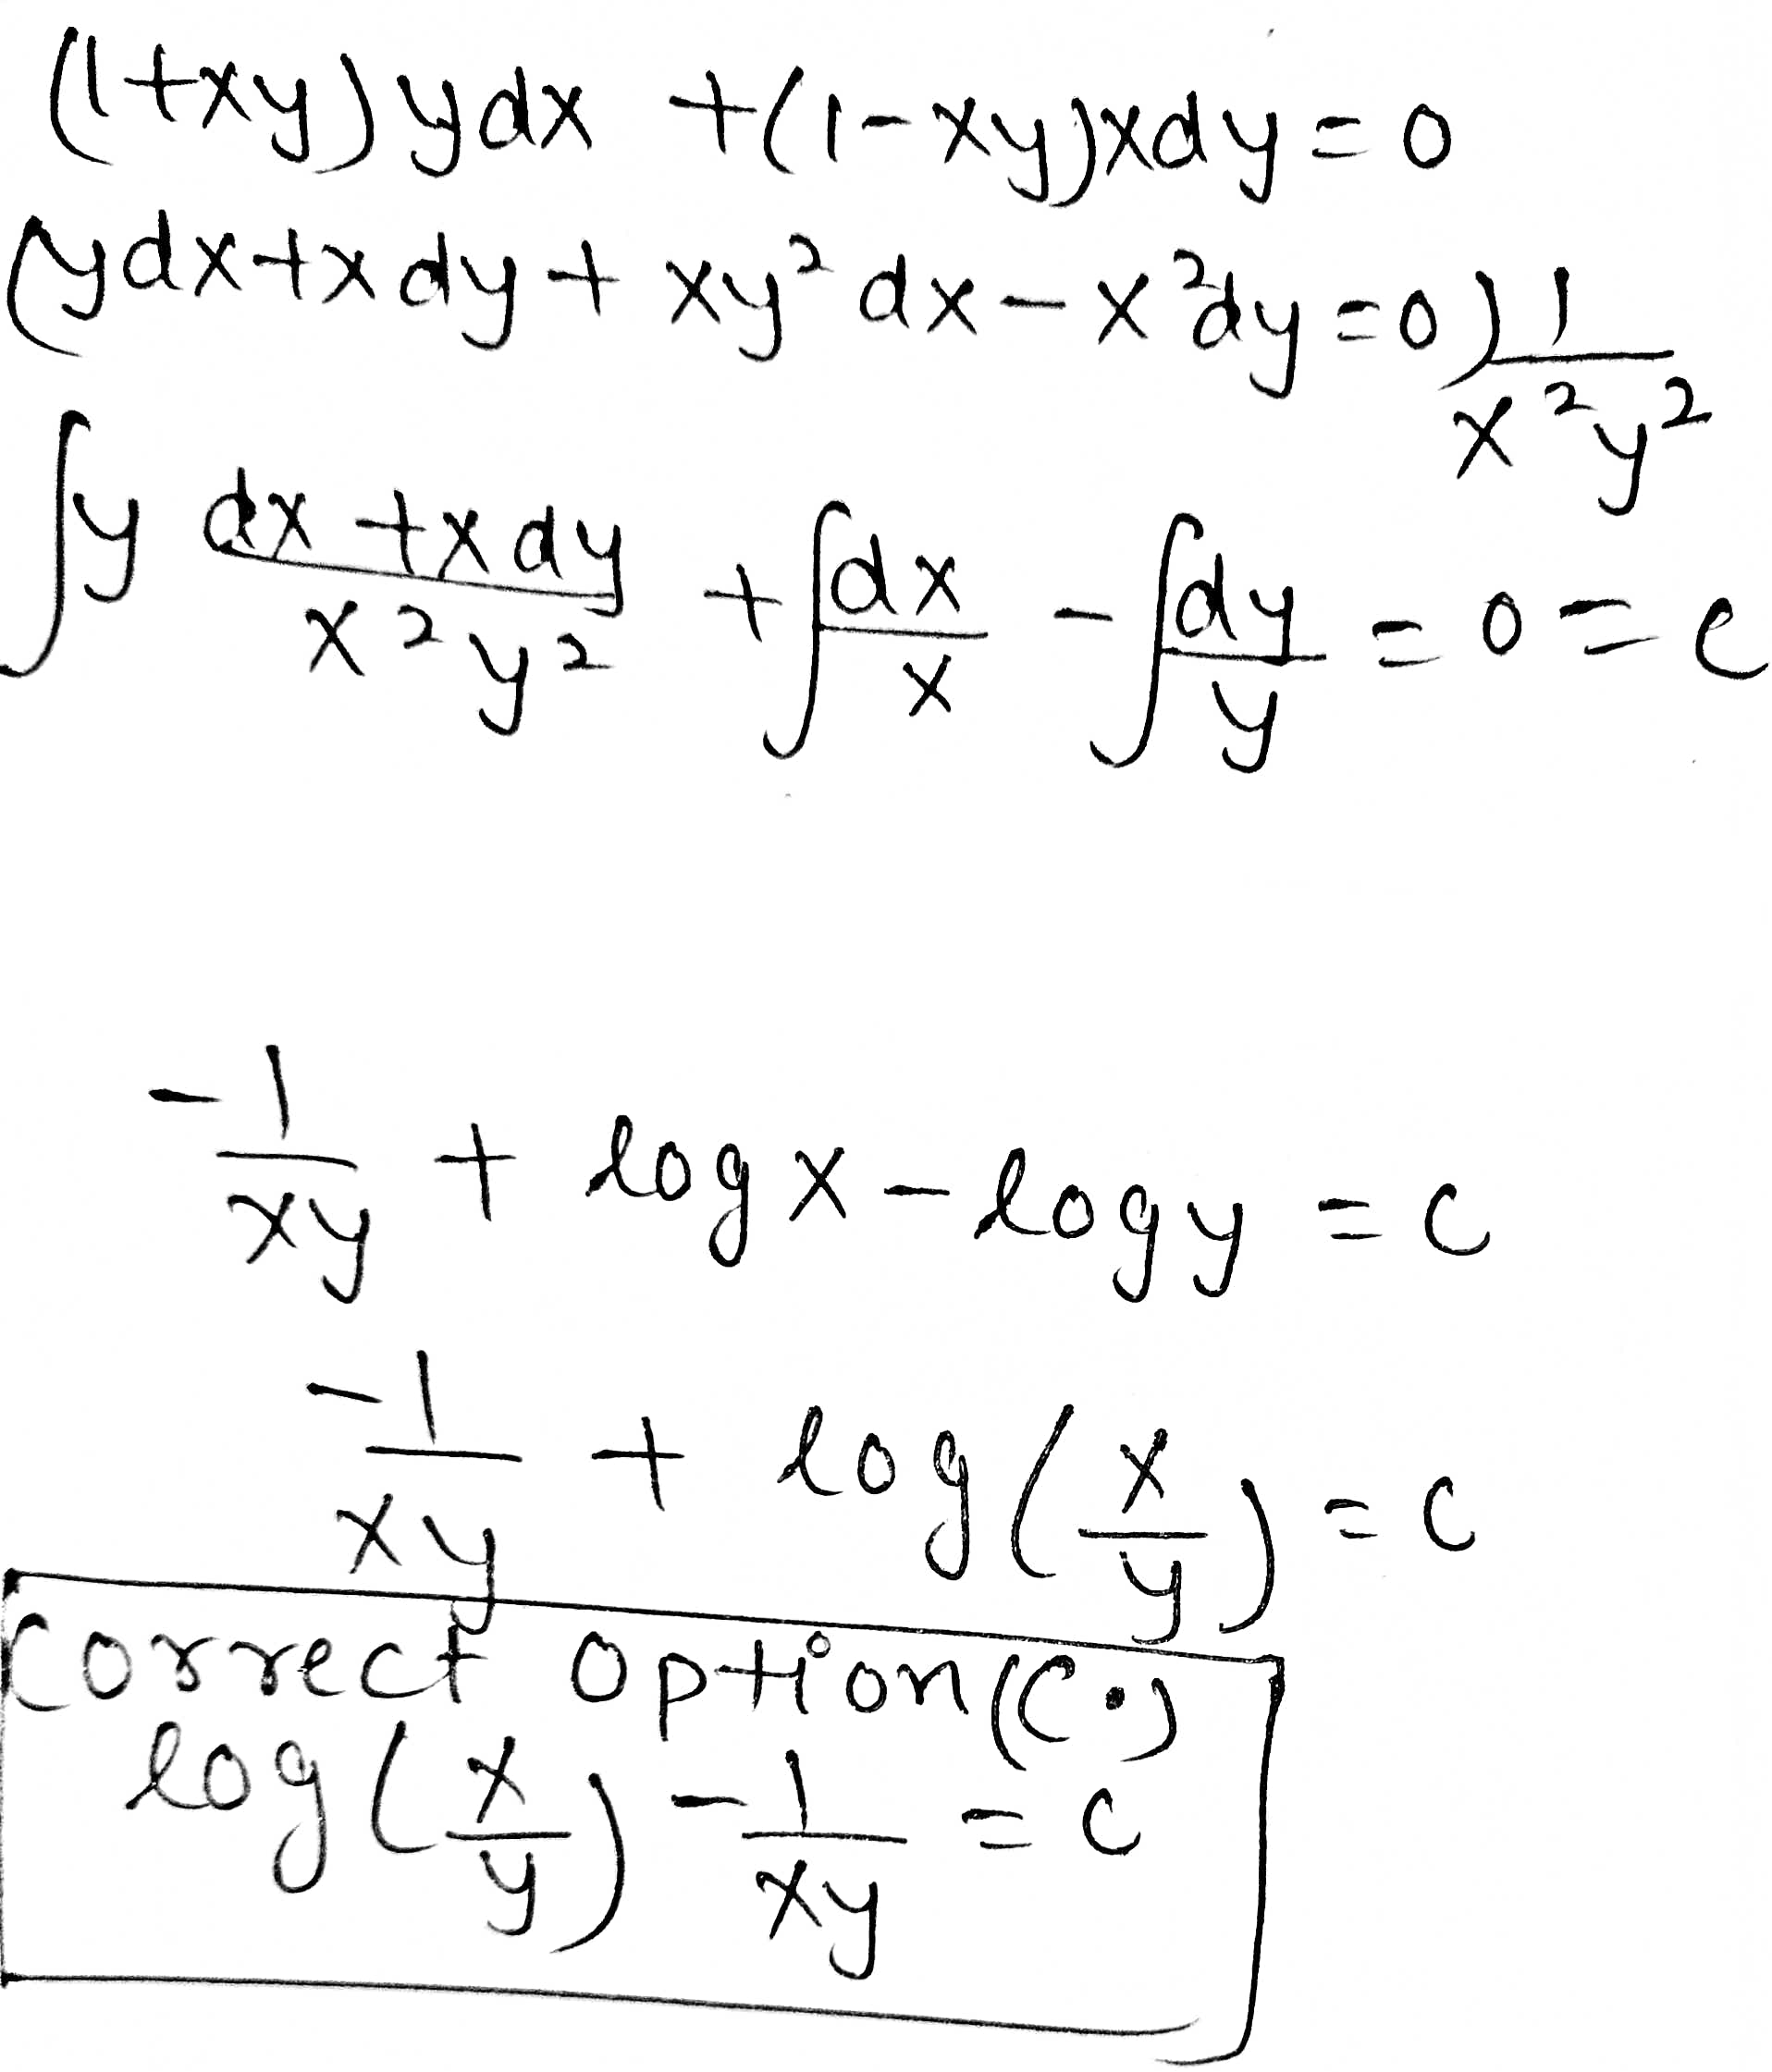 (1+xy)ydx +(1-xy)xdy=0
(ydx+xdy+xy²dx-x²dy=0)1/x²y²
∫y dx+xdy/x²y² +∫dx/x -∫dy/y =0=c
-1/xy + log x - log y = c
-1/xy + log(x/y) = c
correct option(c.)
log(x/y) -1/xy = c